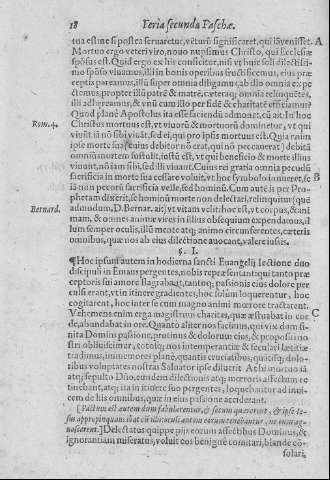 18 Feria secunda Paschæ.
tua est ne si postea seruaretur, vēturū significaret, qui iā venisset. A
Mortuo ergo veteri viro, nouo nupsimus Christo, qui Ecclesiæ
spōsus est. Quid ergo ex his conficitur, nisi vt huic soli dilectissi-
mo spōso viuamus, illi in bonis operibus fructificemus, eius præ
ceptis pareamus, illū super omnia diligamus, ab illo omnia expe
ctemus, propter illū patrē & matrē, cæteraq; omnia relinquētes,
illi adhæreamus, & vnū cum illo per fidē & charitatē efficiamur?
Quod planè Apostolus ita esse faciendū admonet, cū ait. In hoc
Rom. 4. Christus mortuus est, vt viuorū & mortuorū dominetur, vt qui
viuūt iā nō sibi viuāt, sed ei, qui pro ipsis mortuus est. Quia enim
ipse morte sua (cuius debitor nō erat, qui nō peccauerat) debitā
omniū mortem sustulit, iustū est, vt qui beneficio & morte illius
viuunt, nō iam sibi, sed illi viuant. Cuius rei gratia omnia pecudū
sacrificia in morte sua cessare voluit, vt hoc symbolo innueret, se B
iā non pecorū sacrificia velle, sed hominū. Cum autē is per Pro-
phetam dixerit, se hominū morte non delectari, relinquitur (que
Bernard. admodum, D. Bernar. ait) vt vitam velit: hoc est, vt corpus, & ani
mam, & omnes animæ vires in illius obsequium expendamus, il
lum semper oculis, illū mente atq; animo circunferentes, cæteris
omnibus, quæ nos ab eius dilectione auocant, valere iussis.
§. I.
¶Hoc ipsum autem in hodierna sancti Euangelij lectione duo
discipuli in Emaus pergentes, nobis repræsentant: qui tanto præ
ceptoris sui amore flagrabāt, tantoq; passionis eius dolore per
culsi erant, vt in itinere gradientes, hoc solum loquerentur, hoc
cogitarent, hoc inter se cum magno animi mœrore tractarent.
Vehemens enim erga magistrum charitas, quæ æstuabat in cor C
de, abundabat in ore. Quantò aliter nos facimus, qui vix dum fi-
nita Domini passione, protinus & dolorum eius, & propositi no-
stri obliuiscimur, totosq; nos intemperantiæ & seculari lætitiæ
tradimus, immemores planè, quantis cruciatibus, quātisq; dolo-
ribus voluptates nostras Saluator ipse diluerit. At hi mortuo iā
atq; sepulto Dño, eundem dilectionis atq; mœroris affectum re
tinebant, atq; ita in itinere suo pergentes, loquebantur ad inui-
cem de his omnibus, quæ in eius passione acciderant.
[Factum est autem dum fabularentur, & secum quærerent, & ipse Ie-
sus appropinquans ibat cū illis: oculi autem eorum tenebantur, ne eum ag-
noscerent.] Delectatus quippe pijs eorum affectibus Dominus, &
ignorantiam miseratus, voluit eos benignè comitari, blandè cō-
solari,